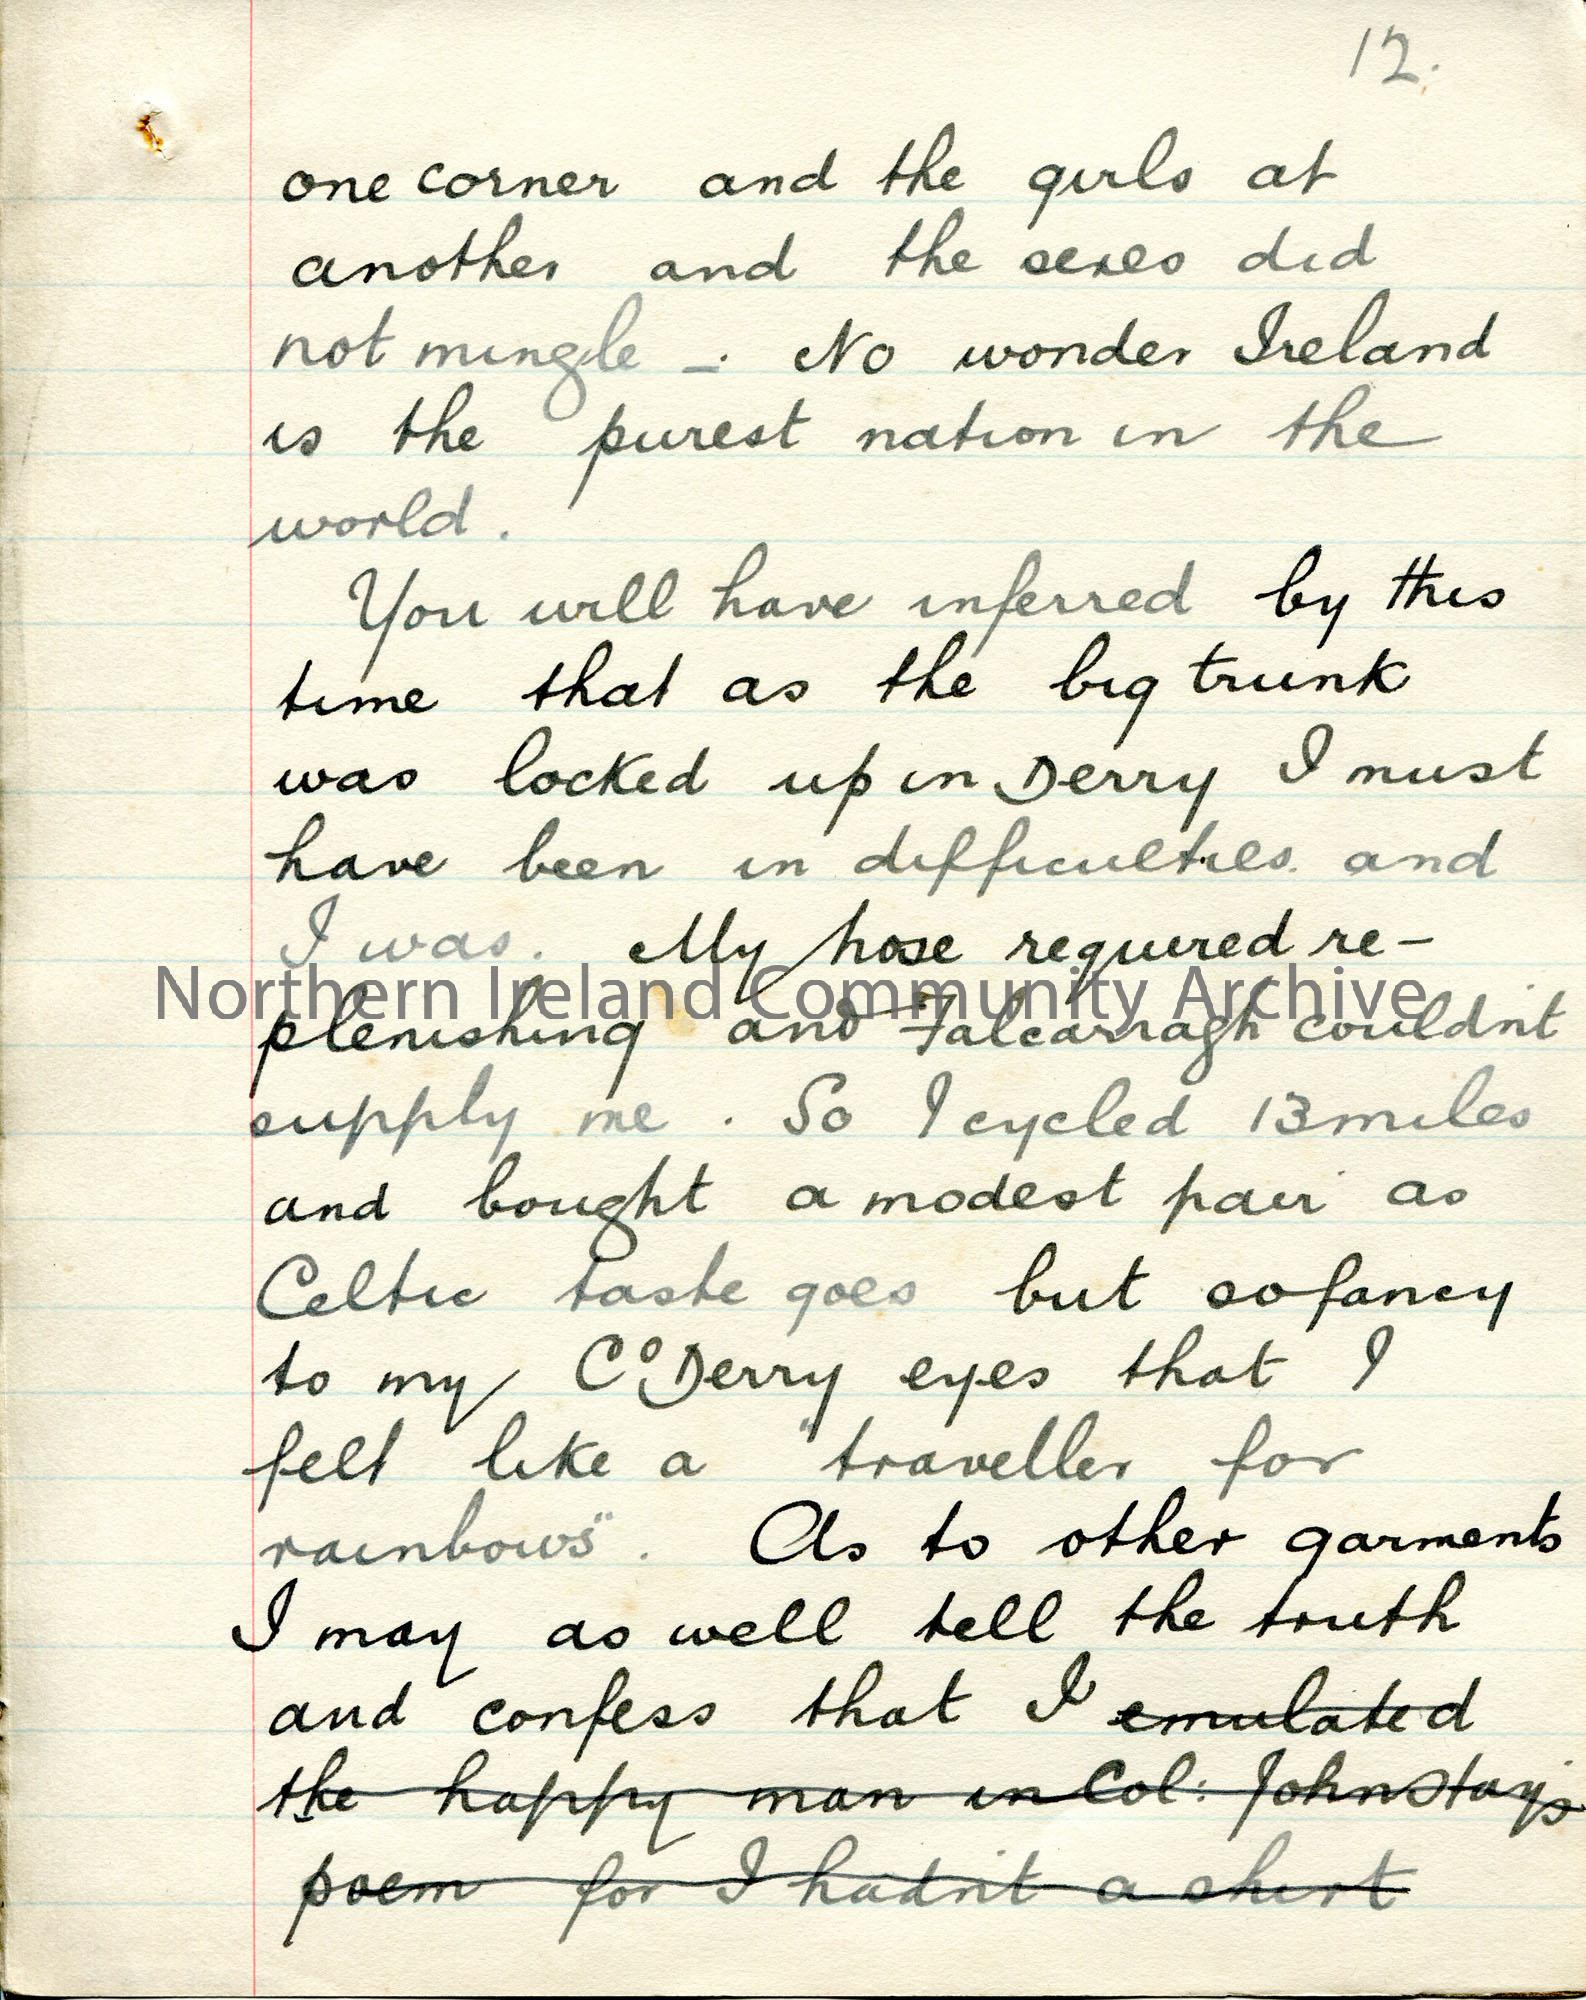 12.
one corner and the girls at
another and the sexes did
not mingle –. No wonder Ireland
is the purest nation in the
world.
You will have inferred by this
time that as the big trunk
was locked up in Derry I must
have been in difficulties and
I was. My hose required re-
Northern Ireland Community Archive
plenishing and Falcarragh couldn't
supply me. So I cycled 13 miles
and bought a modest pair as
Celtic taste goes but so fancy
to my Cº Derry eyes that I
felt like a "traveller for
rainbows". As to other garments
I may as well tell the truth
and confess that I emulated
the happy man in Col: John Hay's
poem for I hadn't a shirt